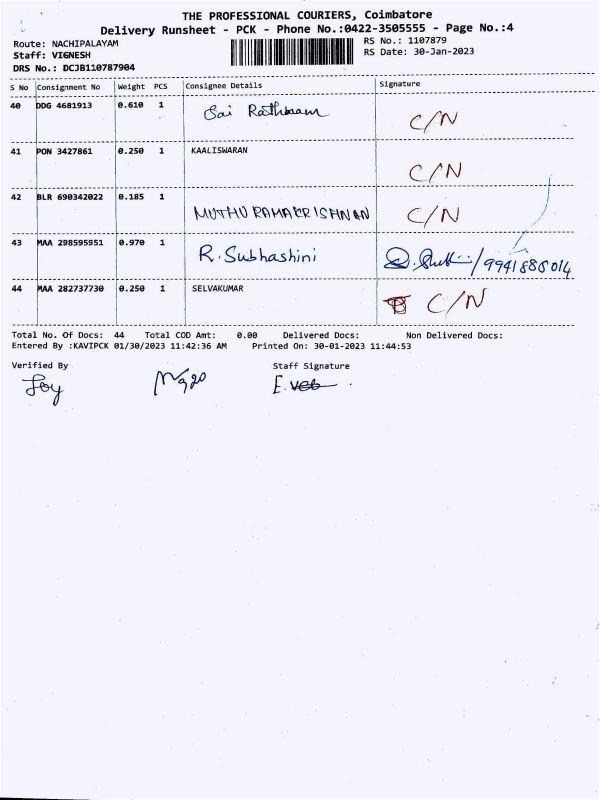 THE PROFESSIONAL COURIERS, Coimbatore
Delivery Runsheet - PCK - Phone No.:0422-3505555 - Page No.:4
Route: NACHIPALAYAM RS No.: 1107879
Staff: VIGNESH RS Date: 30-Jan-2023
DRS No.: DCJB110787904
S No Consignment No Weight PCS Consignee Details Signature
40 DDG 4681913 0.610 1 Sai Rathinam C/N
41 PON 3427861 0.250 1 KAALISWARAN C/N
42 BLR 690342022 0.185 1 MUTHU RAMAKRISHNAN C/N
43 MAA 298595551 0.970 1 R. Subhashini /9941885014
44 MAA 282737730 0.250 1 SELVAKUMAR C/N
Total No. Of Docs: 44 Total COD Amt: 0.00 Delivered Docs: Non Delivered Docs:
Entered By :KAVIPCK 01/30/2023 11:42:36 AM Printed On: 30-01-2023 11:44:53
Verified By Staff Signature
Joy